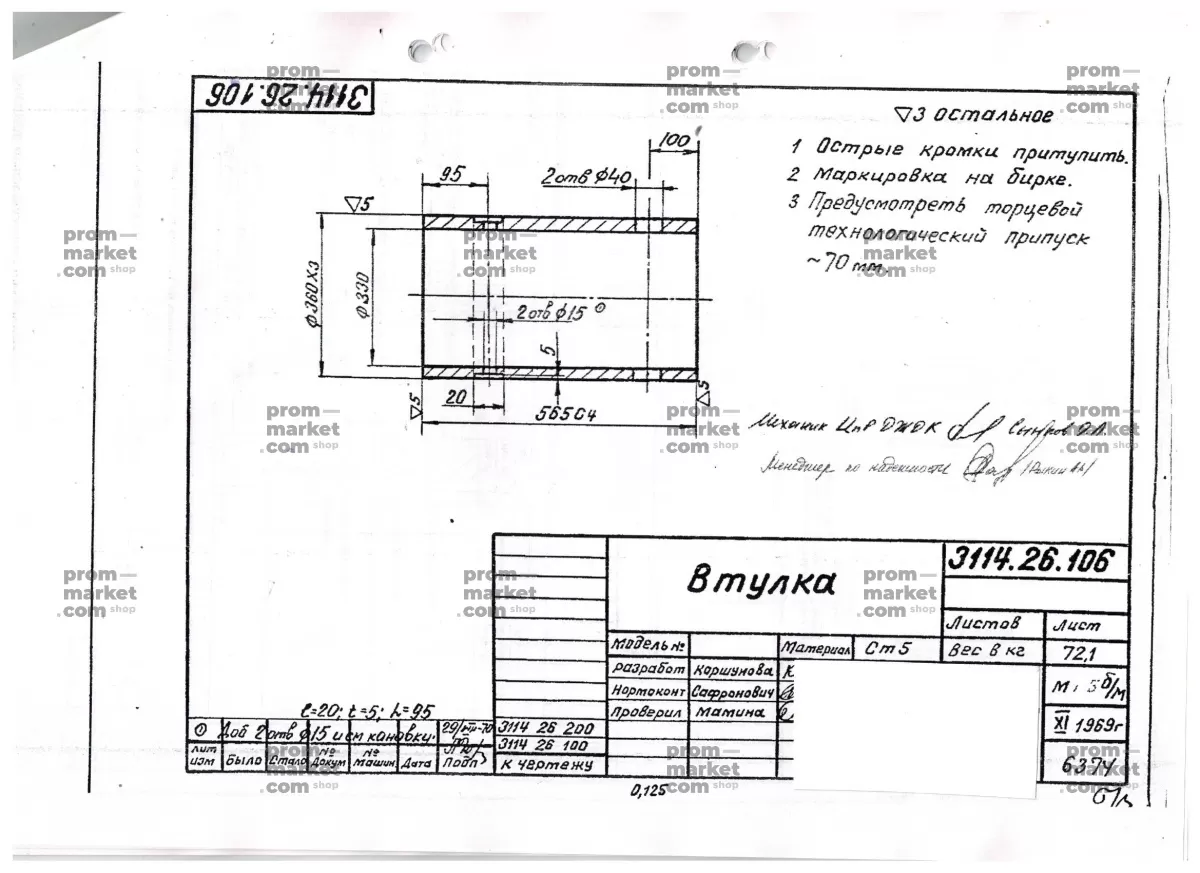 3114.26.106
▽3 остальное
1 Острые кромки притупить.
2 Маркировка на бирке.
3 Предусмотреть торцевой
технологический припуск
~70 мм.
100
95
2 отв ф40
▽5
ф360Х3
ф330
2 отв ф15
5
20
565С4
▽5
▽5
Механик
Менеджер по надежности
Втулка
3114.26.106
Листов
Лист
модель №
Материал
Ст5
Вес в кг
72,1
разработ
Коршунова
Нормоконт
Сафронович
Проверил
Мамина
XI 1969г
6374
ℓ=20; t=5; h=95
Доб 2 отв ф15 и см канавку.
3114 26 200
3114 26 100
к чертежу
Лит
изм
Было
Стало
№
Докум
№
Машин
Дата
Подп
0,125
prom—
market
.com shop